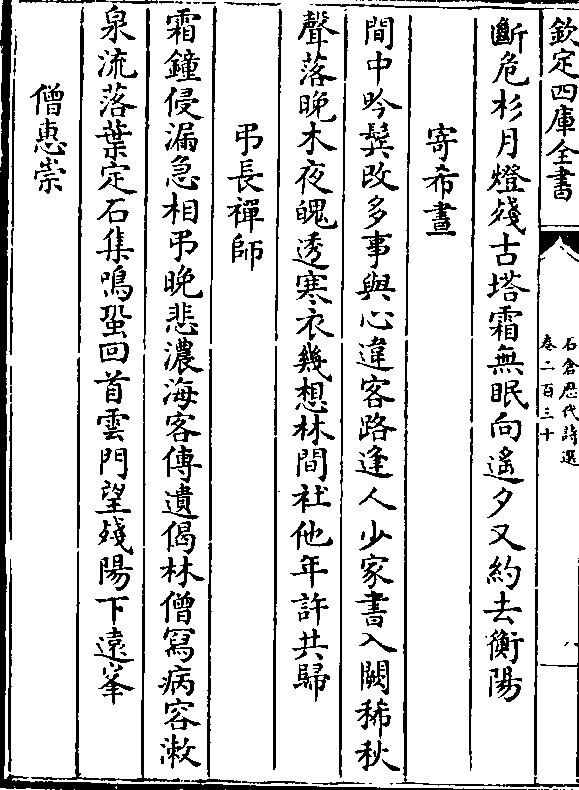 欽定四庫全書
石倉歷代詩選
卷二百三十
八
斷危杉月燈殘古塔霜無眠向遙夕又約去衡陽
寄希晝
間中吟鬂改多事與心違客路逢人少家書入闕稀秋
聲落晚木夜魄透寒衣幾想林間社他年許共歸
弔長禪師
霜鐘侵漏急相弔晚悲濃海客傳遺偈林僧寫病容漱
泉流落葉定石集鳴蛩回首雲門望殘陽下遠峯
僧惠崇